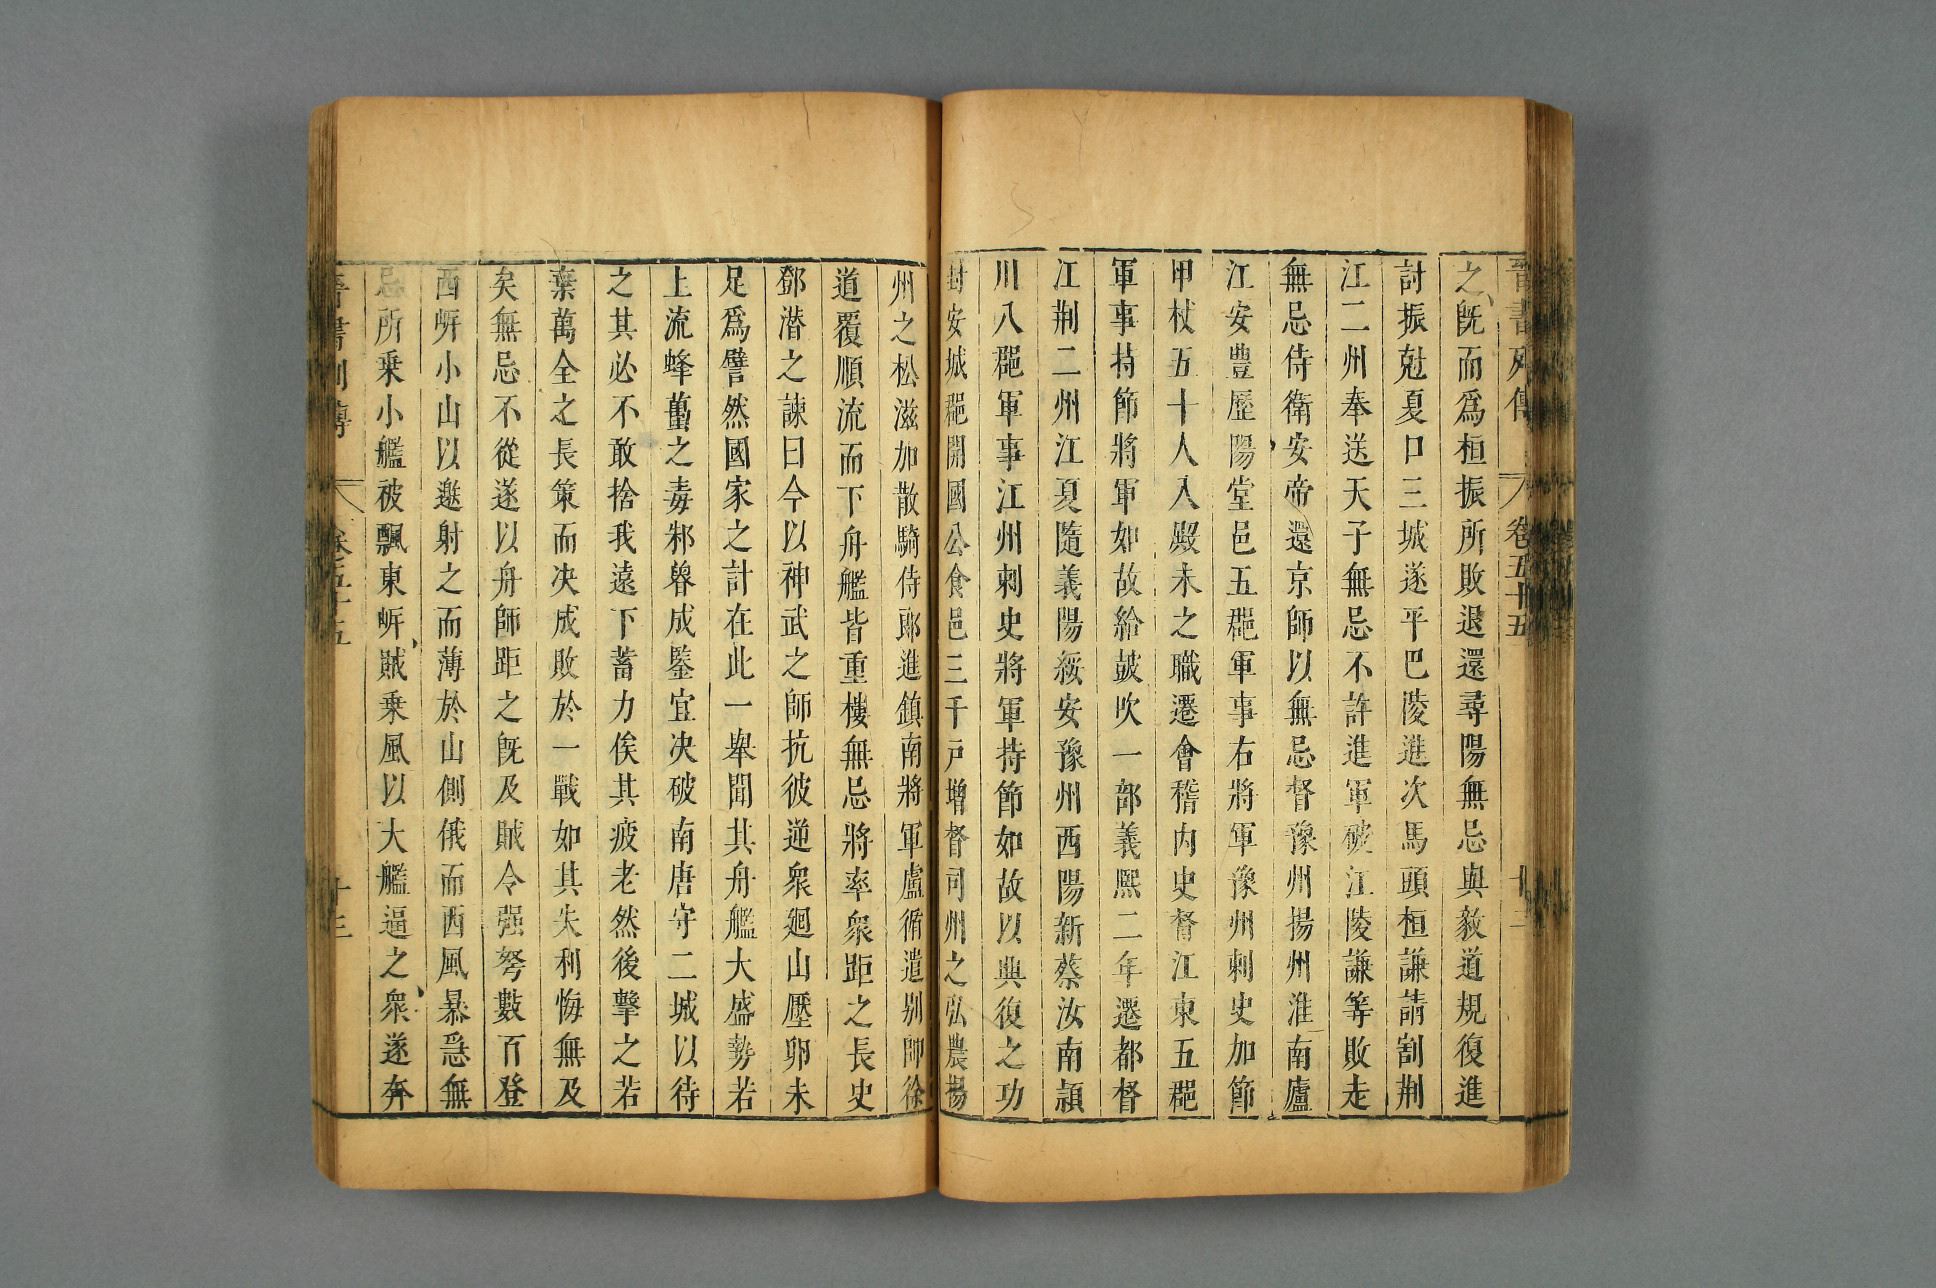 晉書列傳 卷五十五 十二
之旣而爲桓振所敗退還尋陽無忌與毅道規復進
討振尅夏口三城遂平巴陵進次馬頭桓謙請割荆
江二州奉送天子無忌不許進軍破江陵謙等敗走
無忌侍衛安帝還京師以無忌督豫州揚州淮南廬
江安豊歷陽堂邑五郡軍事右將軍豫州刺史加節
甲杖五十人入殿未之職遷會稽內史督江東五郡
軍事持節將軍如故給皷吹一部義熙二年遷都督
江荆二州江夏隨義陽綏安豫州西陽新蔡汝南頴
川八郡軍事江州刺史將軍持節如故以興復之功
封安城郡開國公食邑三千戸增督司州之弘農揚
州之松滋加散騎侍郎進鎮南將軍盧循遣别帥徐
道覆順流而下舟艦皆重樓無忌將率衆距之長史
鄧潜之諫曰今以神武之師抗彼逆衆廻山壓卵未
足爲譬然國家之計在此一舉聞其舟艦大盛勢若
上流蜂蠆之毒邾魯成鑒宜决破南唐守二城以待
之其必不敢捨我遠下蓄力俟其疲老然後擊之若
棄萬全之長策而决成敗於一戰如其失利悔無及
矣無忌不從遂以舟師距之旣及賊令强弩數百登
西㟁小山以邀射之而薄於山側俄而西風暴急無
忌所乗小艦被飄東㟁賊乗風以大艦逼之衆遂奔
晉書列傳 卷五十五 十三